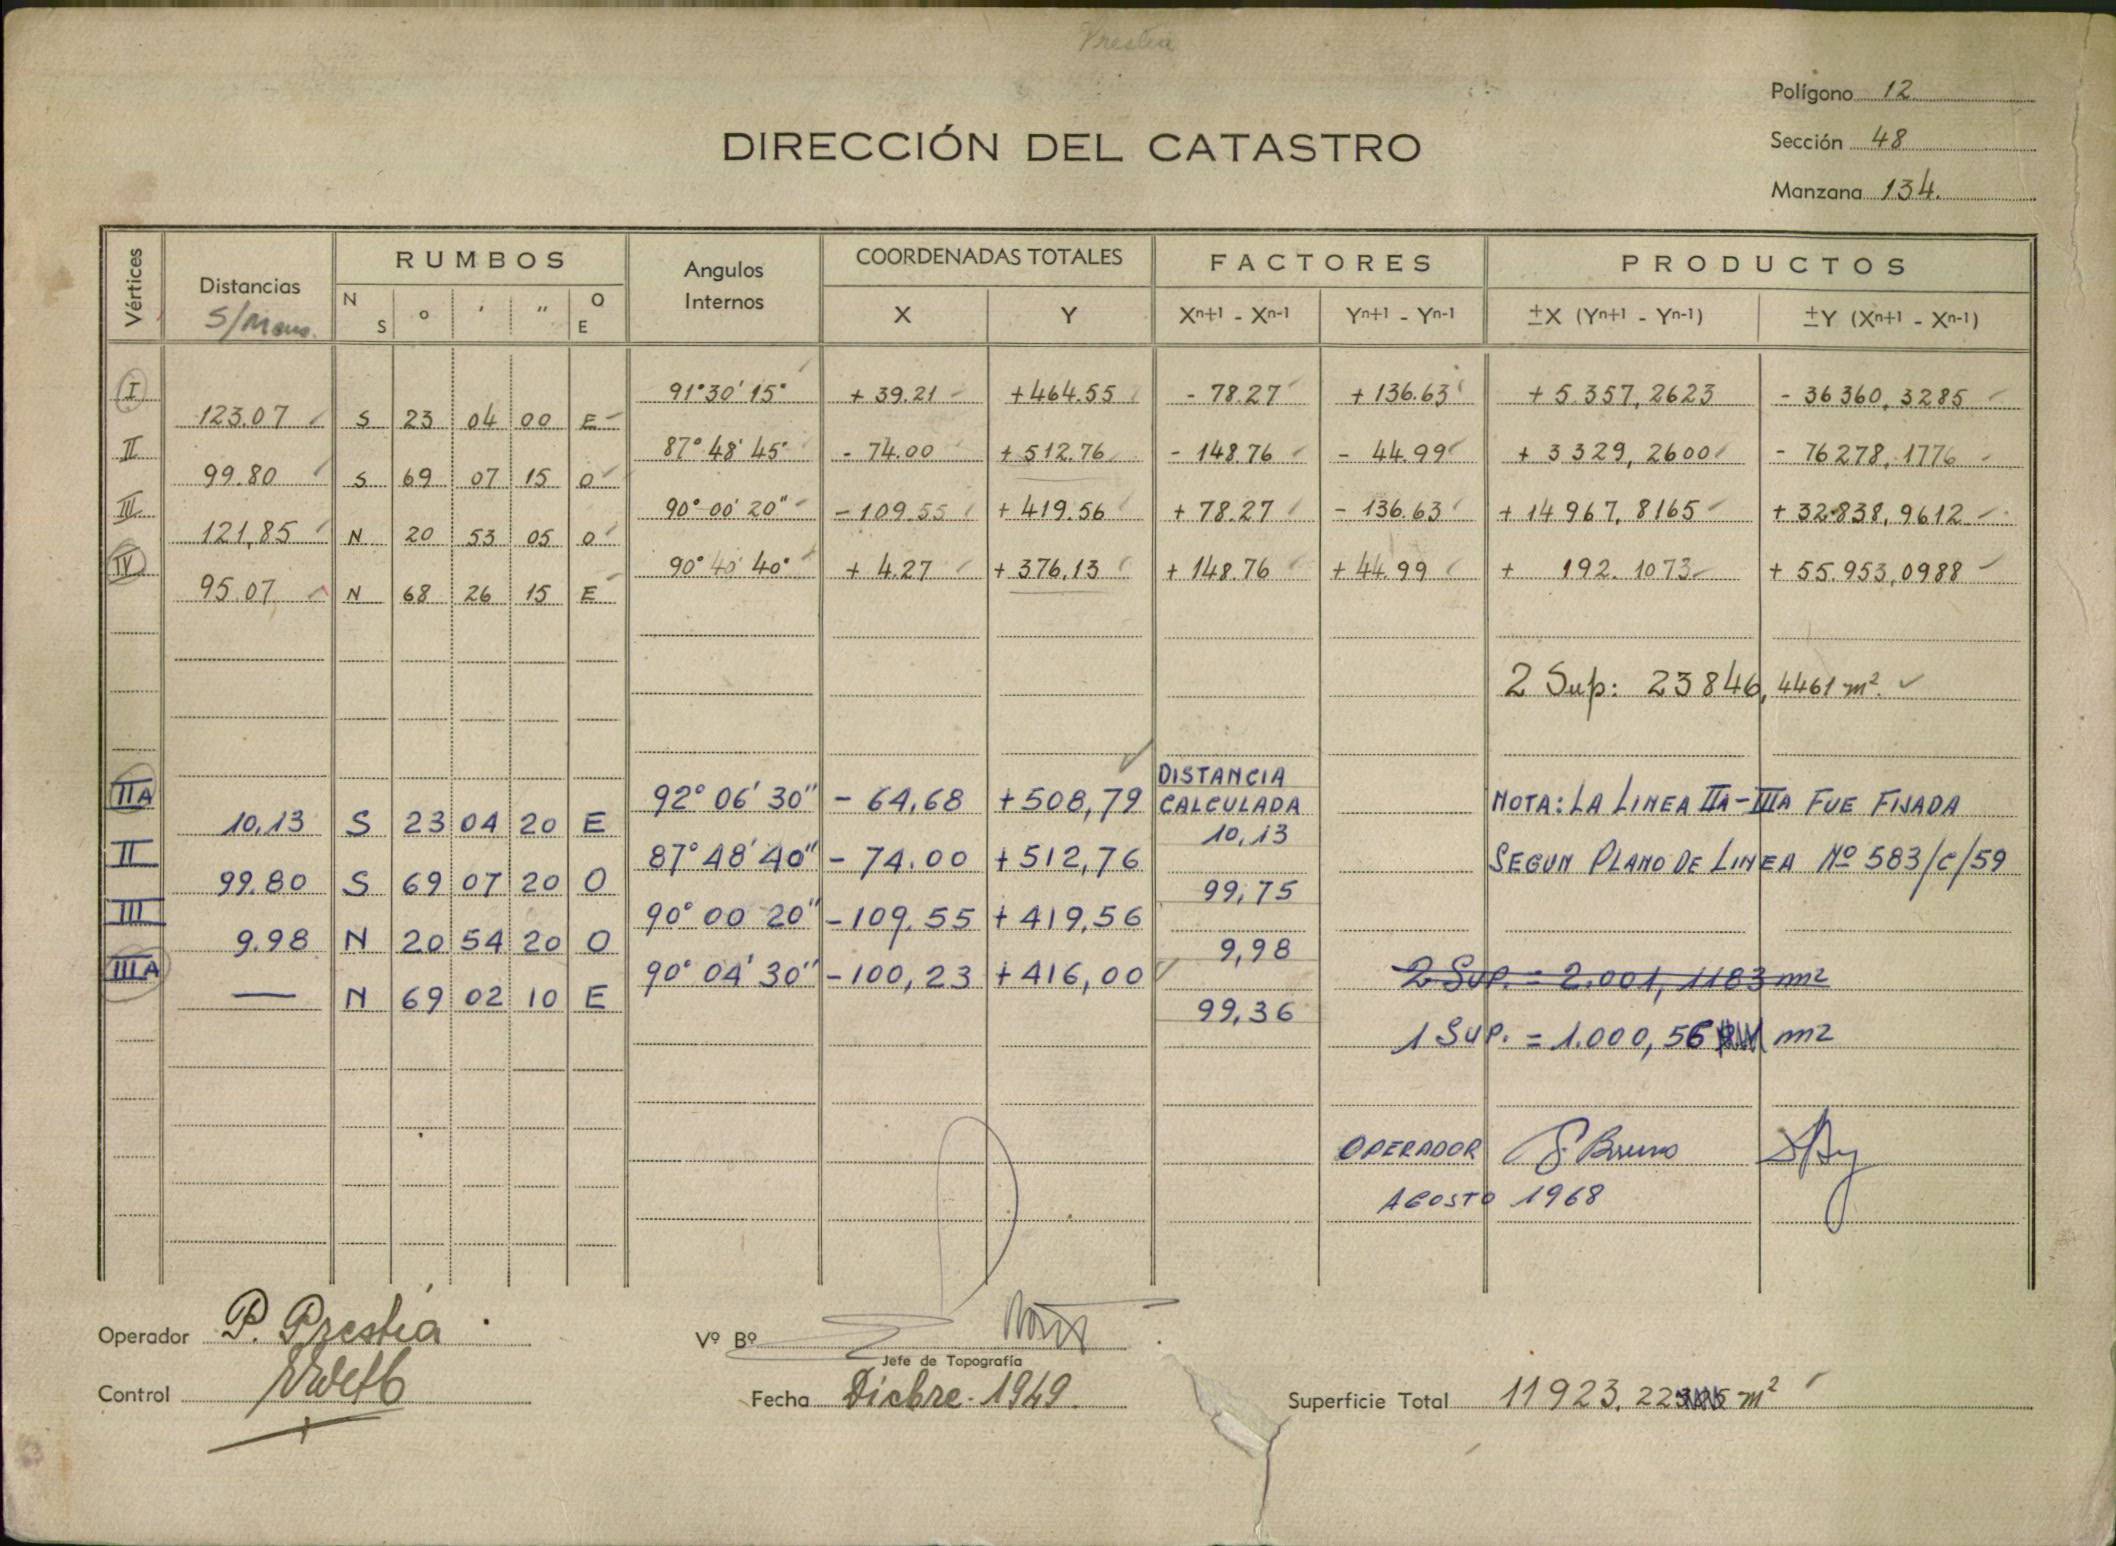 Prestia
Polígono 12
DIRECCIÓN DEL CATASTRO
Sección 48
Manzana 134.
Vértices
Distancias
S/Mens.
RUMBOS
N S
° ' "
O E
Angulos Internos
COORDENADAS TOTALES
X Y
FACTORES
Xn+1 - Xn-1 Yn+1 - Yn-1
PRODUCTOS
±X (Yn+1 - Yn-1) ±Y (Xn+1 - Xn-1)
I 91°30'15" + 39.21 +464.55 - 78.27 + 136.63 + 5.357,2623 - 36360,3285
123.07 S 23 04 00 E
II 87°48'45" - 74.00 + 512.76 - 148.76 - 44.99 + 3329,2600 - 76278,1776
99.80 S 69 07 15 O
III 90°00'20" - 109.55 + 419.56 + 78.27 - 136.63 + 14967,8165 + 32.838,9612
121,85 N 20 53 05 O
IV 90°40'40" + 4.27 + 376.13 + 148.76 + 44.99 + 192.1073 + 55.953,0988
95.07 N 68 26 15 E
2 Sup: 23846,4461 m².
IIA 92° 06' 30" - 64,68 +508,79 DISTANCIA CALCULADA NOTA: LA LINEA IIA-IIIA FUE FIJADA
10,13 S 23 04 20 E 10,13
II 87° 48' 40" - 74.00 +512,76 SEGUN PLANO DE LINEA Nº 583/C/59
99.80 S 69 07 20 O 99,75
III 90° 00 20" -109.55 +419,56
9.98 N 20 54 20 O 9,98
IIIA 90° 04' 30" -100,23 +416,00 2 SUP. = 2.001,1183 m2
— N 69 02 10 E 99,36
1 SUP. = 1.000,56 m2
OPERADOR S. Bruno
AGOSTO 1968
Operador P. Prestia
Vº Bº
Jefe de Topografía
Control
Fecha Dicbre. 1949.
Superficie Total 11923.22 m²